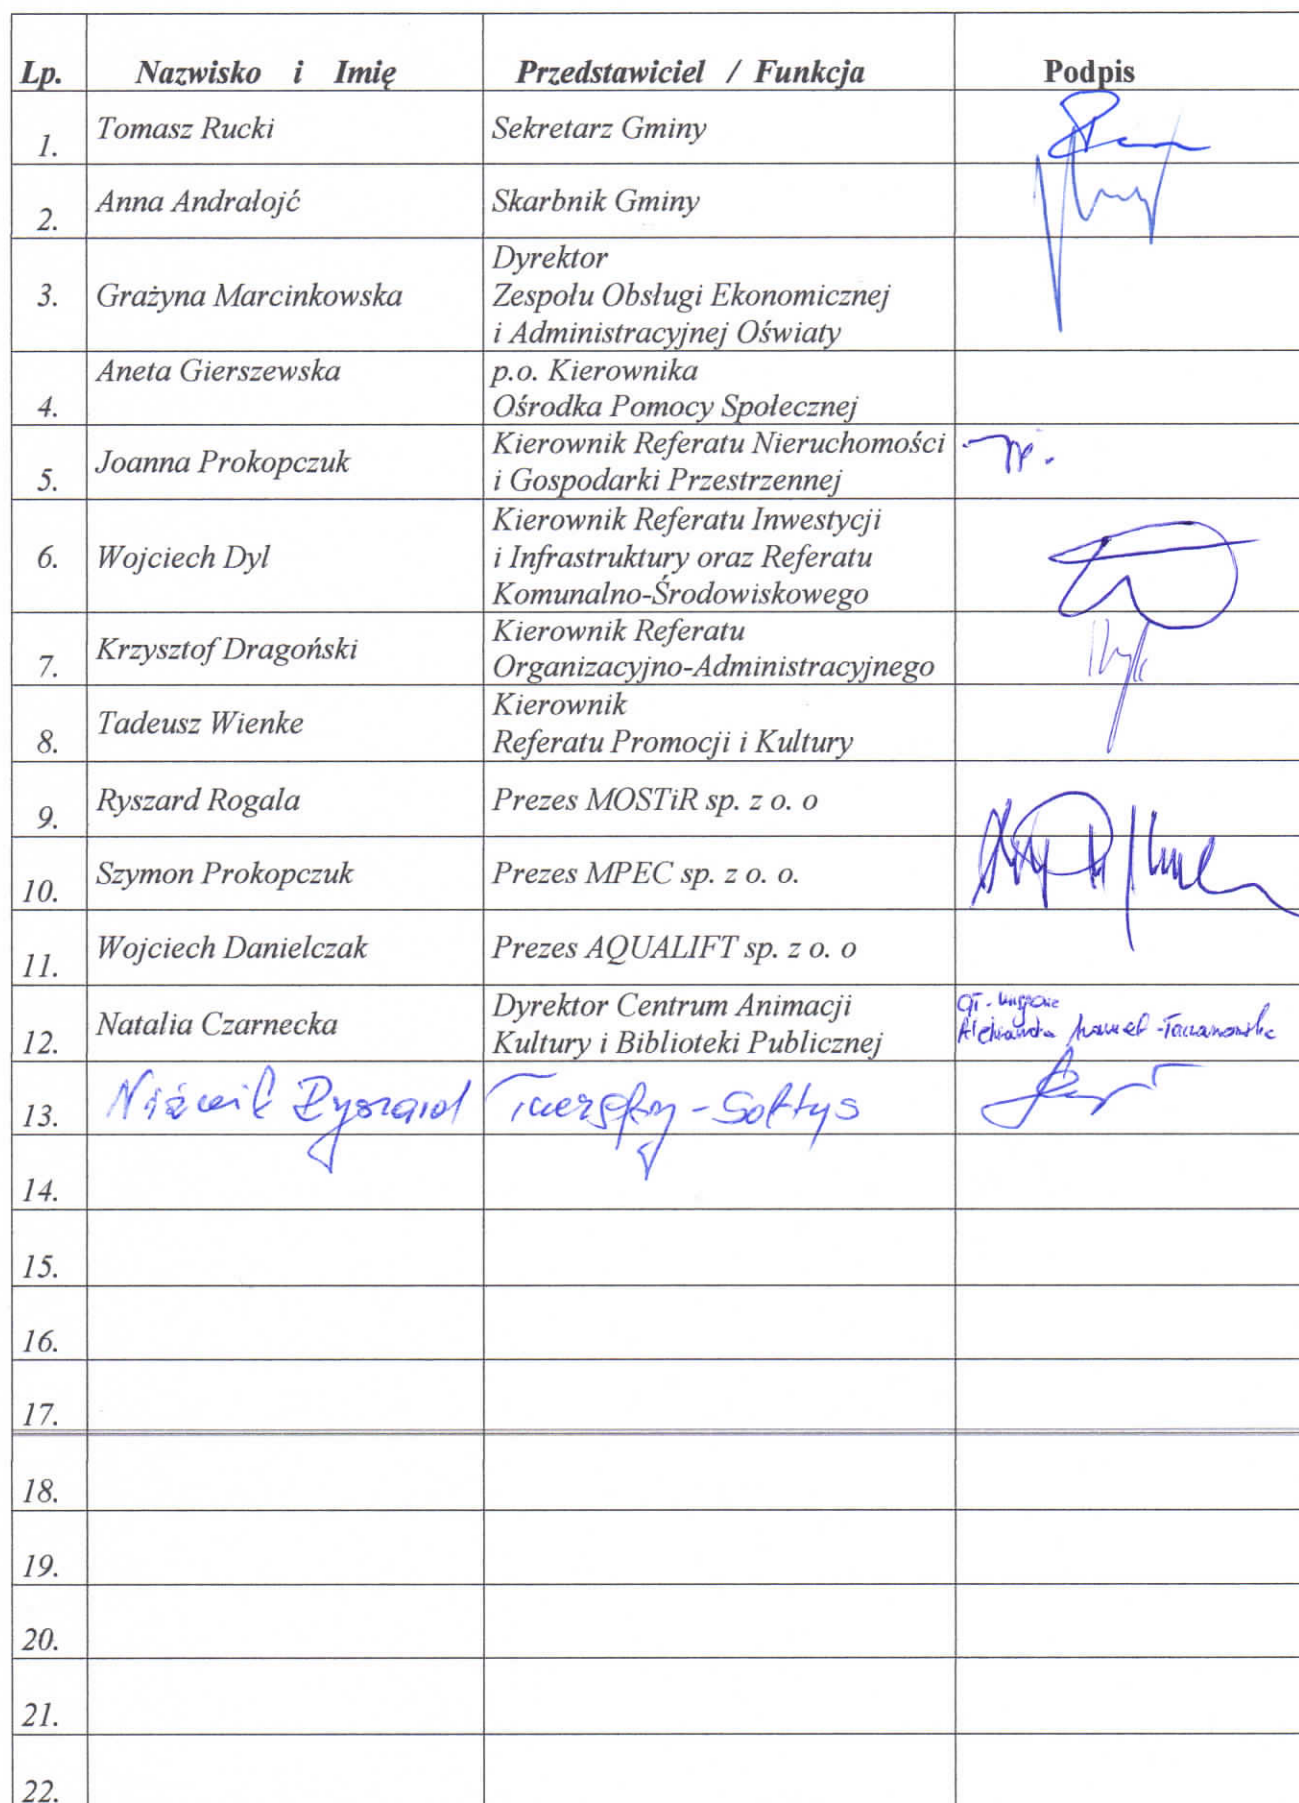 Lp. Nazwisko i Imię Przedstawiciel / Funkcja Podpis
1. Tomasz Rucki Sekretarz Gminy
2. Anna Andrałojć Skarbnik Gminy
3. Grażyna Marcinkowska Dyrektor
Zespołu Obsługi Ekonomicznej
i Administracyjnej Oświaty
4. Aneta Gierszewska p.o. Kierownika
Ośrodka Pomocy Społecznej
5. Joanna Prokopczuk Kierownik Referatu Nieruchomości
i Gospodarki Przestrzennej
6. Wojciech Dyl Kierownik Referatu Inwestycji
i Infrastruktury oraz Referatu
Komunalno-Środowiskowego
7. Krzysztof Dragoński Kierownik Referatu
Organizacyjno-Administracyjnego
8. Tadeusz Wienke Kierownik
Referatu Promocji i Kultury
9. Ryszard Rogala Prezes MOSTiR sp. z o. o
10. Szymon Prokopczuk Prezes MPEC sp. z o. o.
11. Wojciech Danielczak Prezes AQUALIFT sp. z o. o
12. Natalia Czarnecka Dyrektor Centrum Animacji
Kultury i Biblioteki Publicznej
Aleksandra
13. Ryszard - Sołtys
14.
15.
16.
17.
18.
19.
20.
21.
22.